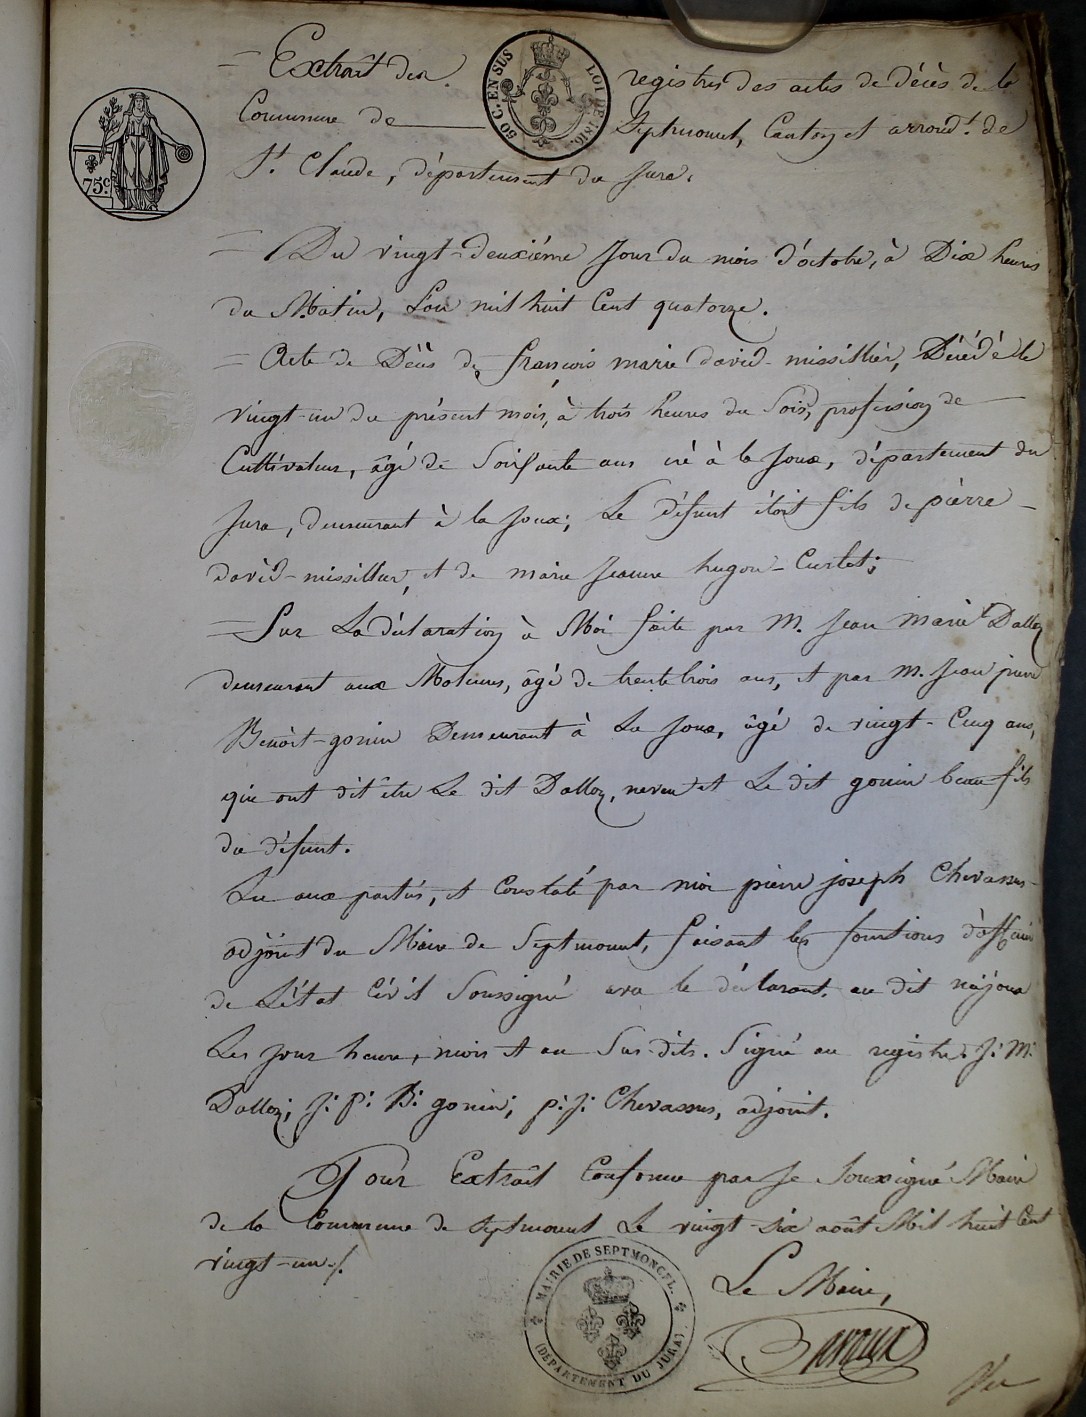 = Extrait des registres des actes de décès de la
50 C. EN SUS LOI DE 1816.
Commune de Septmoncel, Canton et arrond.t de
75.c
St. Claude, département du Jura.
= Du vingt-deuxième Jour du mois d'octobre, à Dix heures
du Matin, L'an mil huit Cent quatorze.
= Acte de Décès de françois marie david-missillier, Décédé le
vingt-un du présent mois, à trois heures du Soir, profession de
Cultivateur, âgé de Soixante ans né à la Joux, département du
Jura, demeurant à la Joux; Le défunt étoit fils de pierre
david-missillier, et de marie Jeanne hugon-Curlet;
= Sur La déclaration à Moi faite par M. Jean Marie Dalloz
demeurant aux Molunes, âgé de trente trois ans, et par M. Jean pierre
Benoit-gonin Demeurant à La Joux, âgé de vingt-Cinq ans,
qui ont dit être Le dit Dalloz, neveu et Le dit gonin beau-fils
du défunt.
Lu aux parties, et Constaté par moi pierre joseph Chevassus-
adjoint du Maire de Septmoncel, faisant les fonctions d'officier
de L'état Civil Soussigné avec le déclarant. au dit
Les jour heure, mois et an Sus-dits. Signé au registre. J: M:
Dalloz; J: P: B: gonin; p: J: Chevassus, adjoint.
Pour Extrait Conforme par Je Soussigné Maire
de la Commune de Septmoncel Le vingt-six août Mil huit Cent
vingt-un./.
MAIRIE DE SEPTMONCEL. (DÉPARTEMENT DU JURA)
Le Maire,